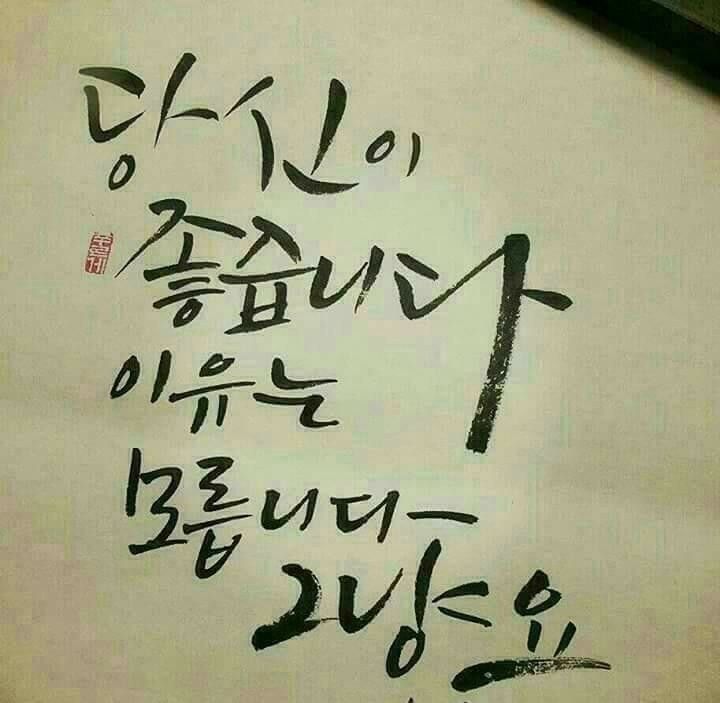 당신이
좋습니다
이유는
모릅니다
그냥요